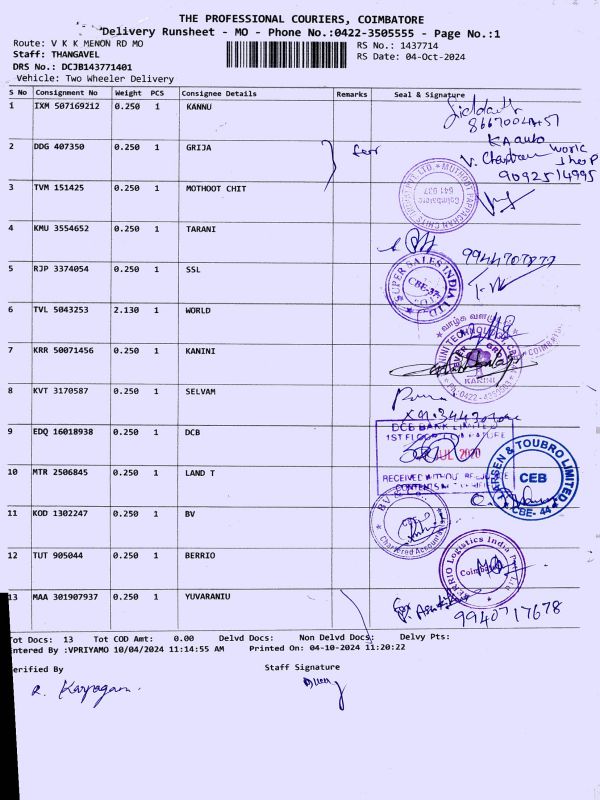 THE PROFESSIONAL COURIERS, COIMBATORE
Delivery Runsheet - MO - Phone No.:0422-3505555 - Page No.:1
Route: V K K MENON RD MO
RS No.: 1437714
Staff: THANGAVEL
RS Date: 04-Oct-2024
DRS No.: DCJB143771401
Vehicle: Two Wheeler Delivery
S No Consignment No Weight PCS Consignee Details Remarks Seal & Signature
1 IXM 507169212 0.250 1 KANNU
2 DDG 407350 0.250 1 GRIJA
KA auto
work
shop
9092514995
3 TVM 151425 0.250 1 MOTHOOT CHIT
MUTHOOT PAPPACHAN CHITS
Coimbatore
641 037
4 KMU 3554652 0.250 1 TARANI
9944707877
5 RJP 3374054 0.250 1 SSL
SUPER SALES INDIA LTD
CBE-37
6 TVL 5043253 2.130 1 WORLD
வாழ்க வளமுடன்
7 KRR 50071456 0.250 1 KANINI
KANINI
8 KVT 3170587 0.250 1 SELVAM
9 EDQ 16018938 0.250 1 DCB
DCB BANK LIMITED
1ST FLOOR
RECEIVED WITHOUT
CONTENTS
10 MTR 2506845 0.250 1 LAND T
LARSEN & TOUBRO LIMITED
CEB
CBE- 44
11 KOD 1302247 0.250 1 BV
Chartered Accountants
12 TUT 905044 0.250 1 BERRIO
BERRIO Logistics India Pvt Ltd
13 MAA 301907937 0.250 1 YUVARANIU
9940717678
Tot Docs: 13 Tot COD Amt: 0.00 Delvd Docs: Non Delvd Docs: Delvy Pts:
Entered By :VPRIYAMO 10/04/2024 11:14:55 AM Printed On: 04-10-2024 11:20:22
Verified By
Staff Signature
R. Karpagam.